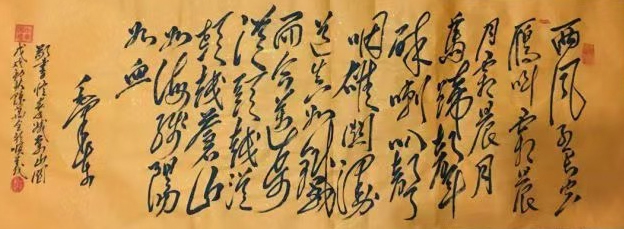 西风烈长空
雁叫霜晨
月霜晨月
馬蹄聲
碎喇叭聲
咽雄関漫
道真如鐵
而今邁步
從頭越從
頭越蒼山
如海殘陽
如血
毛泽东
敬書忆秦娥娄山関
戊戌初秋